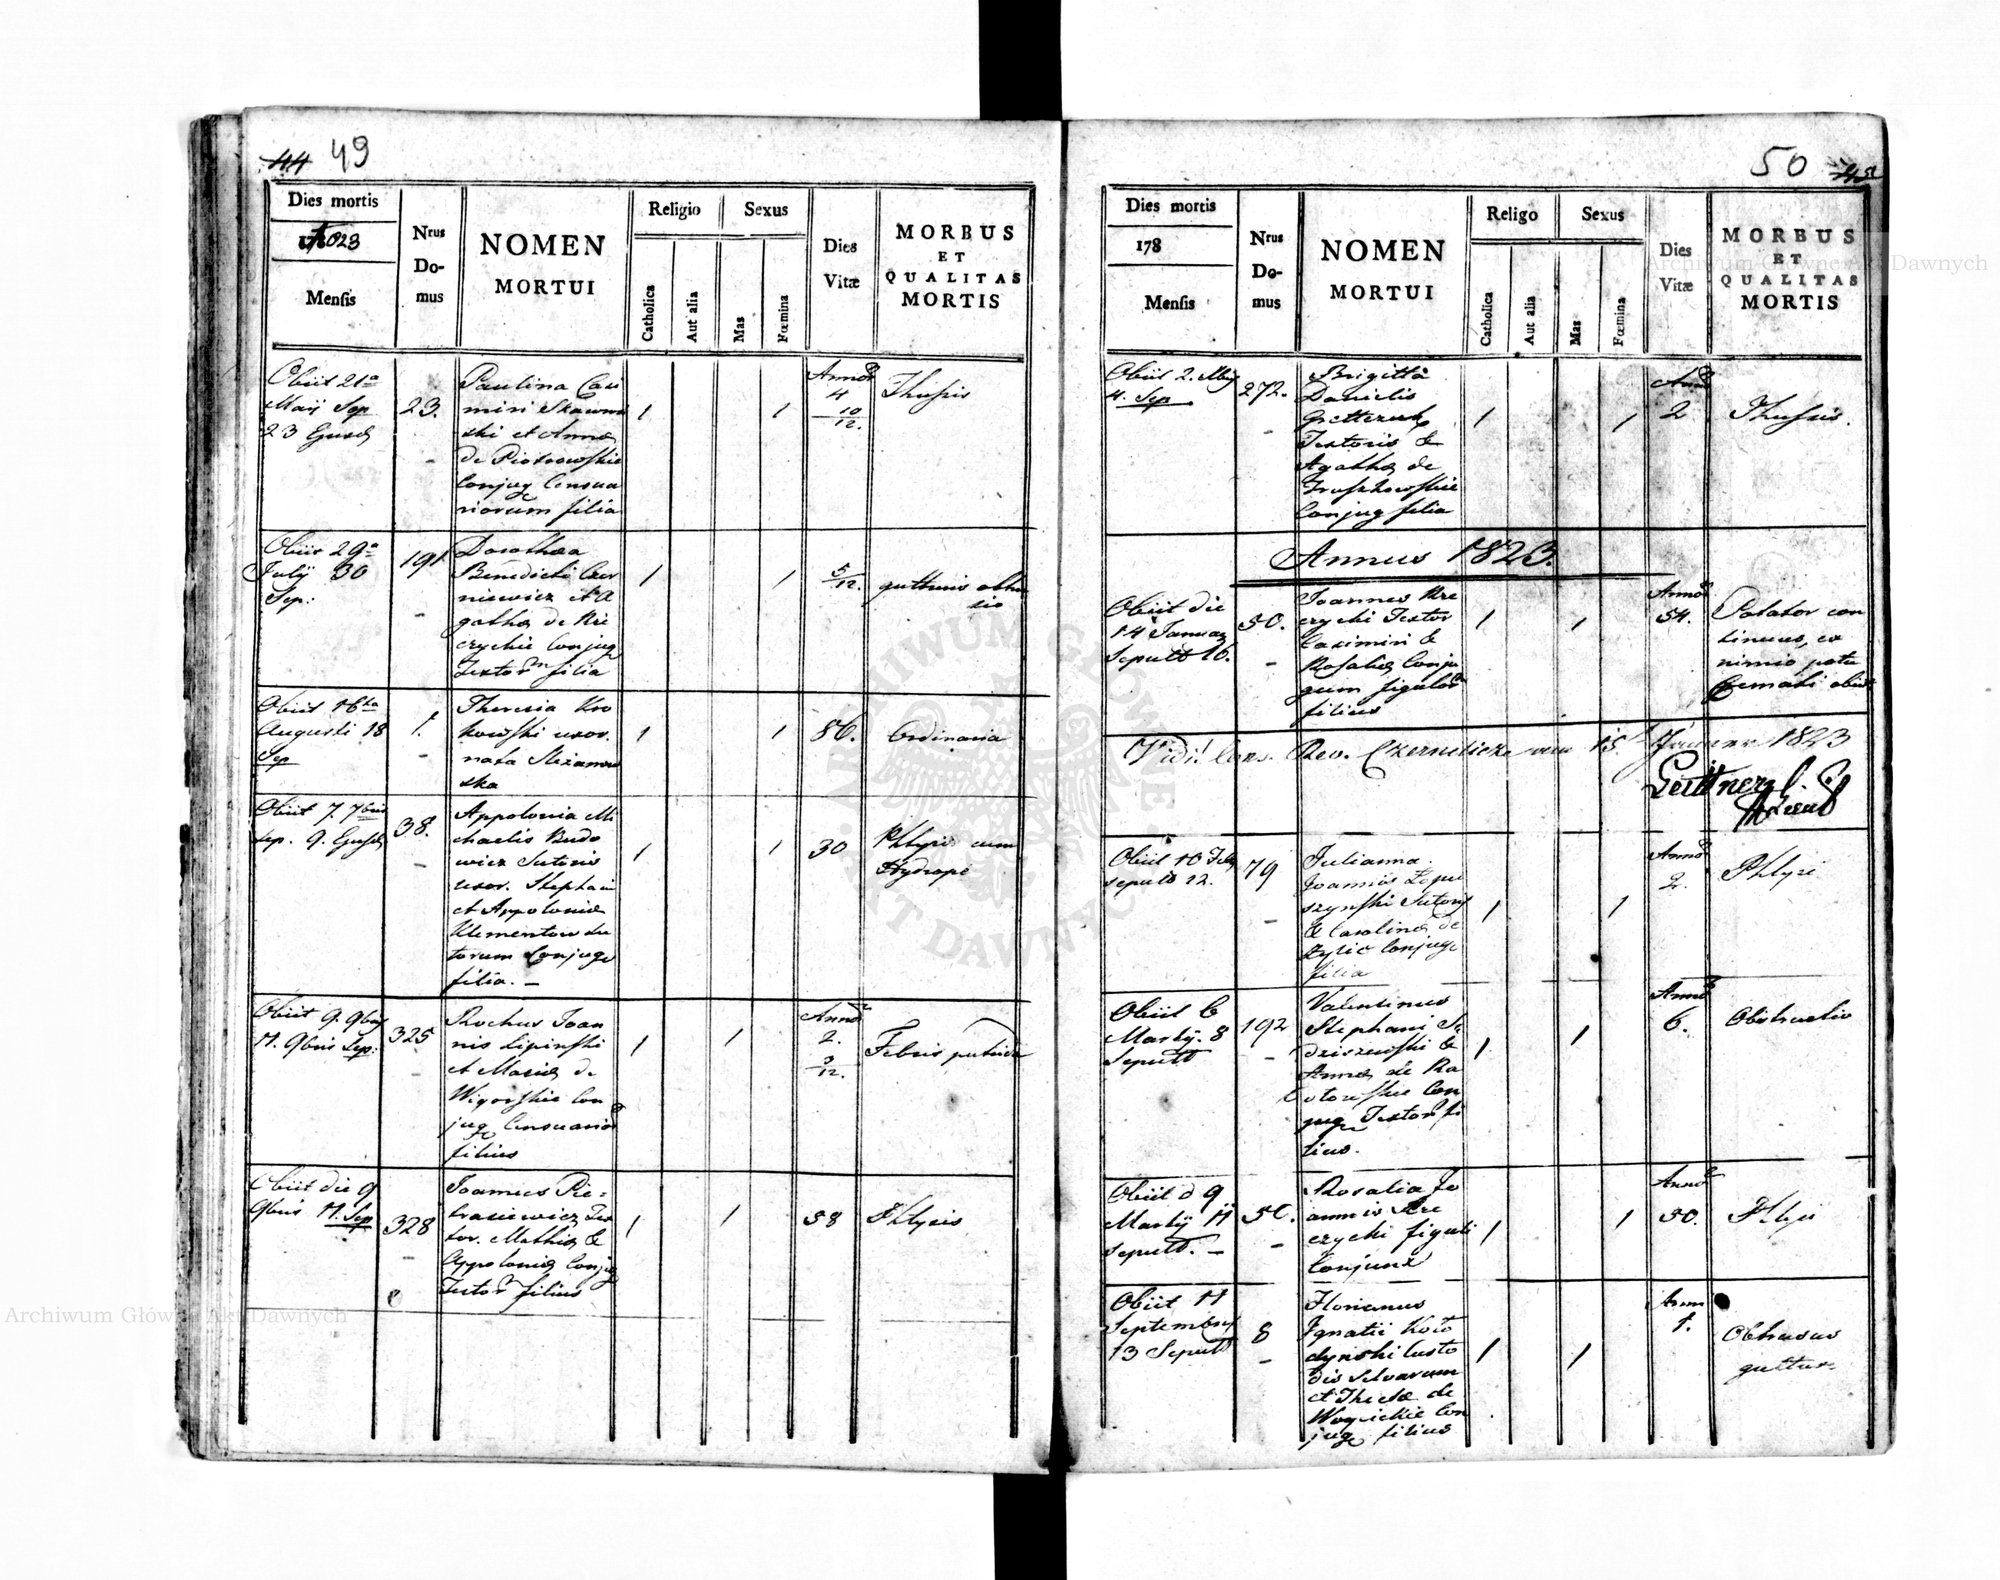 44 49
Dies mortis
1823
Mensis
Nrus
Do-
mus
NOMEN
MORTUI
Religio
Catholica
Aut alia
Sexus
Mas
Fœmina
Dies
Vitæ
MORBUS
ET
QUALITAS
MORTIS
Obiit 21a
Maij Sep
23 Ejusd
23.
Paulina Casi
miri Skawin
ski et Anna
de Piotrowskie
Conjug Censua
riorum filia
1
1
Annor
4
10/12.
Thussis
Obiit 29a
July 30
Sep:
191
Dorothea
Benedicti Czer
niewicz et A
gatha de Krzé
czychie Conjug
Textor filia
1
1
5/12.
gutturis obtu
sio
Obiit 16ta
Augusti 18
Sep
1.
Theresia Kro
kowski uxor.
nata
ska
1
1
86.
Ordinaria
Obiit 7. 7bris
Sep. 9. Ejusd
38.
Appolonia Mi
chaelis Budo
wicz Sutoris
uxor. Stephani
et Appolonia
Klementow Su
torum Conjuge
filia. –
1
1
30
Phtysis cum
Hydrope
Obiit 9. 9bris
11. 9bris Sep:
325
Rochus Joan
nis Lipinski
et Maria de
Wigorskie Con
jug Censuarior
filius
1
1
Annor
2.
3/12.
Febris putrida
Obiit die 9
9bris 11. Sep
328
Joannes Pie=
trasiewicz Tex
tor. Mathia &
Appolonia Conjug
Textor filius
1
1
58
Phtysis
50
Dies mortis
178
Mensis
Nrus
Do-
mus
NOMEN
MORTUI
Religo
Catholica
Aut alia
Sexus
Mas
Fœmina
Dies
Vitæ
MORBUS
ET
QUALITAS
MORTIS
Obiit 2.
4. Sep
272.
Brigitta
Danielis
Textoris &
Agatha de
Truszkowskie
Conjug filia
1
1
Annor
2
Thussis.
Annus 1823.
Obiit die
14 Januar
Sepult 16.
50.
Joannes Krze
czychi Textor
Casimiri &
Rosalia Conju
gum figulor
filius
1
1
Annor
54.
Potator con
tinuus, ex
nimio potu
Cremati obiit
Vidi! 15. Jänner 1823
Obiit 10 Feb
sepult 12.
79
Julianna
Joannis
szynski Sutoris
& Carolina de
Zylic Conjuge
filia
1
1
Annor
2.
Phtysi
Obiit 6
Martij. 8
Sepult
192
Valentinus
Stephani
dziszewski &
Anna de Ra
Con
jug Textor fi
lius.
1
1
Annor
6.
Obstructio
Obiit d 9
Martij 11
sepult. –
50.
Rosalia Jo
annis Krze
czychi figuli
Conjunx
1
1
Annor
50.
Phtysi
Obiit 11
Septembris
13 Sepult
8
Florianus
Ignatii Koło
dynski Custo
dis silvarum
et Thecla de
Woycickie Con
jug filius
1
1
Annor
1.
Obtusus
guttur
Archiwum Główne Akt Dawnych
Archiwum Główne Akt Dawnych
ARCHIWUM GŁÓWNE AKT DAWNYCH